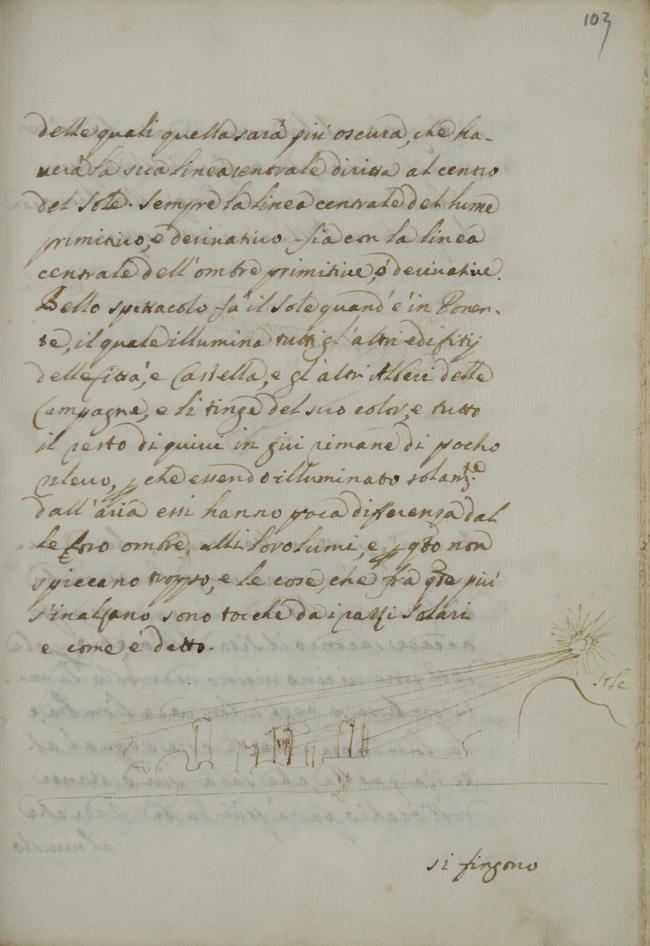 103
delle quali quella sarà più oscura, che ha-
uerà la sua linea centrale diritta al centro
del Sole. Sempre la linea centrale del lume
primitiuo, e deriuatiuo sia con la linea
centrale dell'ombre primitiue, e deriuatiue.
Bello spettacolo fà il Sole quand'è in Ponen-
te, il quale illumina tutti gl'altri edifitij
delle Città, e Castella, e gl'altri Alberi delle
Campagne, e li tinge del suo color, e tutto
il resto di quiui in giù rimane di pocho
releuo, p che essendo illuminato solam.te
dall'aria essi hanno poca differenza dal
le loro ombre, alli loro lumi, e p q.to non
spiccano troppo, e le cose, che frà q.te più
s'inalzano sono tocche da i razzi Solari
e come è detto.
Sole
si fingono